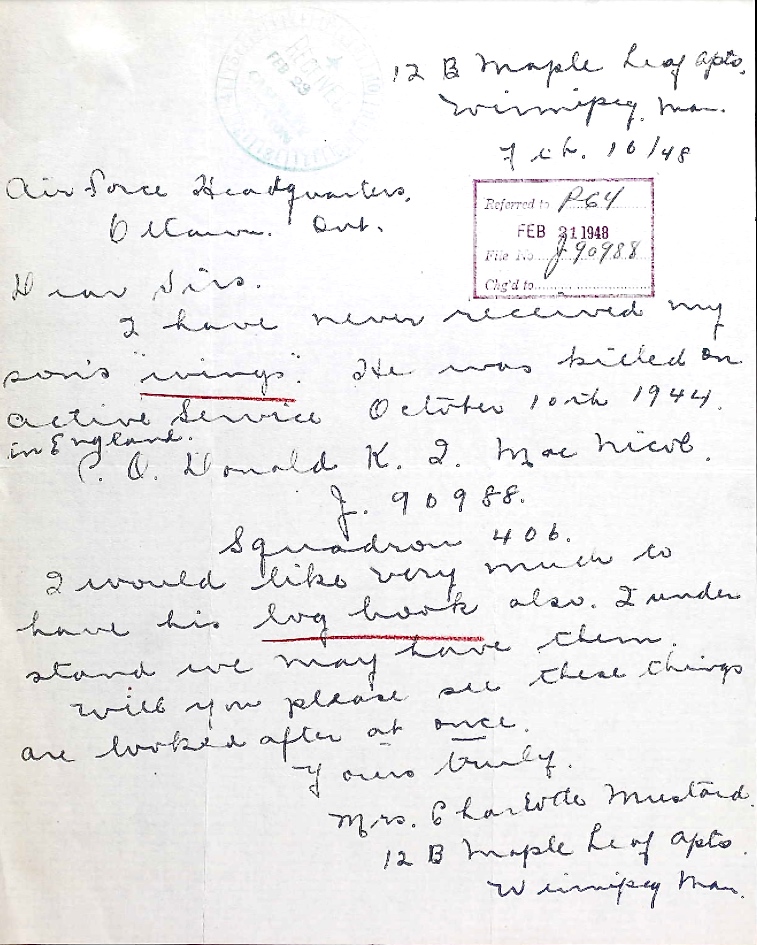 RECEIVED
FEB 23
12 B Maple Leaf Apts,
Winnipeg, Man.
Feb. 16/48
Referred to P64
FEB 21 1948
File No. J90988
Chg'd to
Air Force Headquarters,
Ottawa. Ont.
Dear Sirs.
I have never received my
son's "wings". He was killed on
active Service October 10th 1944.
in England.
P. O. Donald K. I. Mac Nicol.
J. 90988.
Squadron 406.
I would like very much to
have his log book also. I under
stand we may have them.
Will you please see these things
are looked after at once.
Yours truly.
Mrs. Charlotte Mustard.
12 B Maple Leaf Apts.
Winnipeg Man.